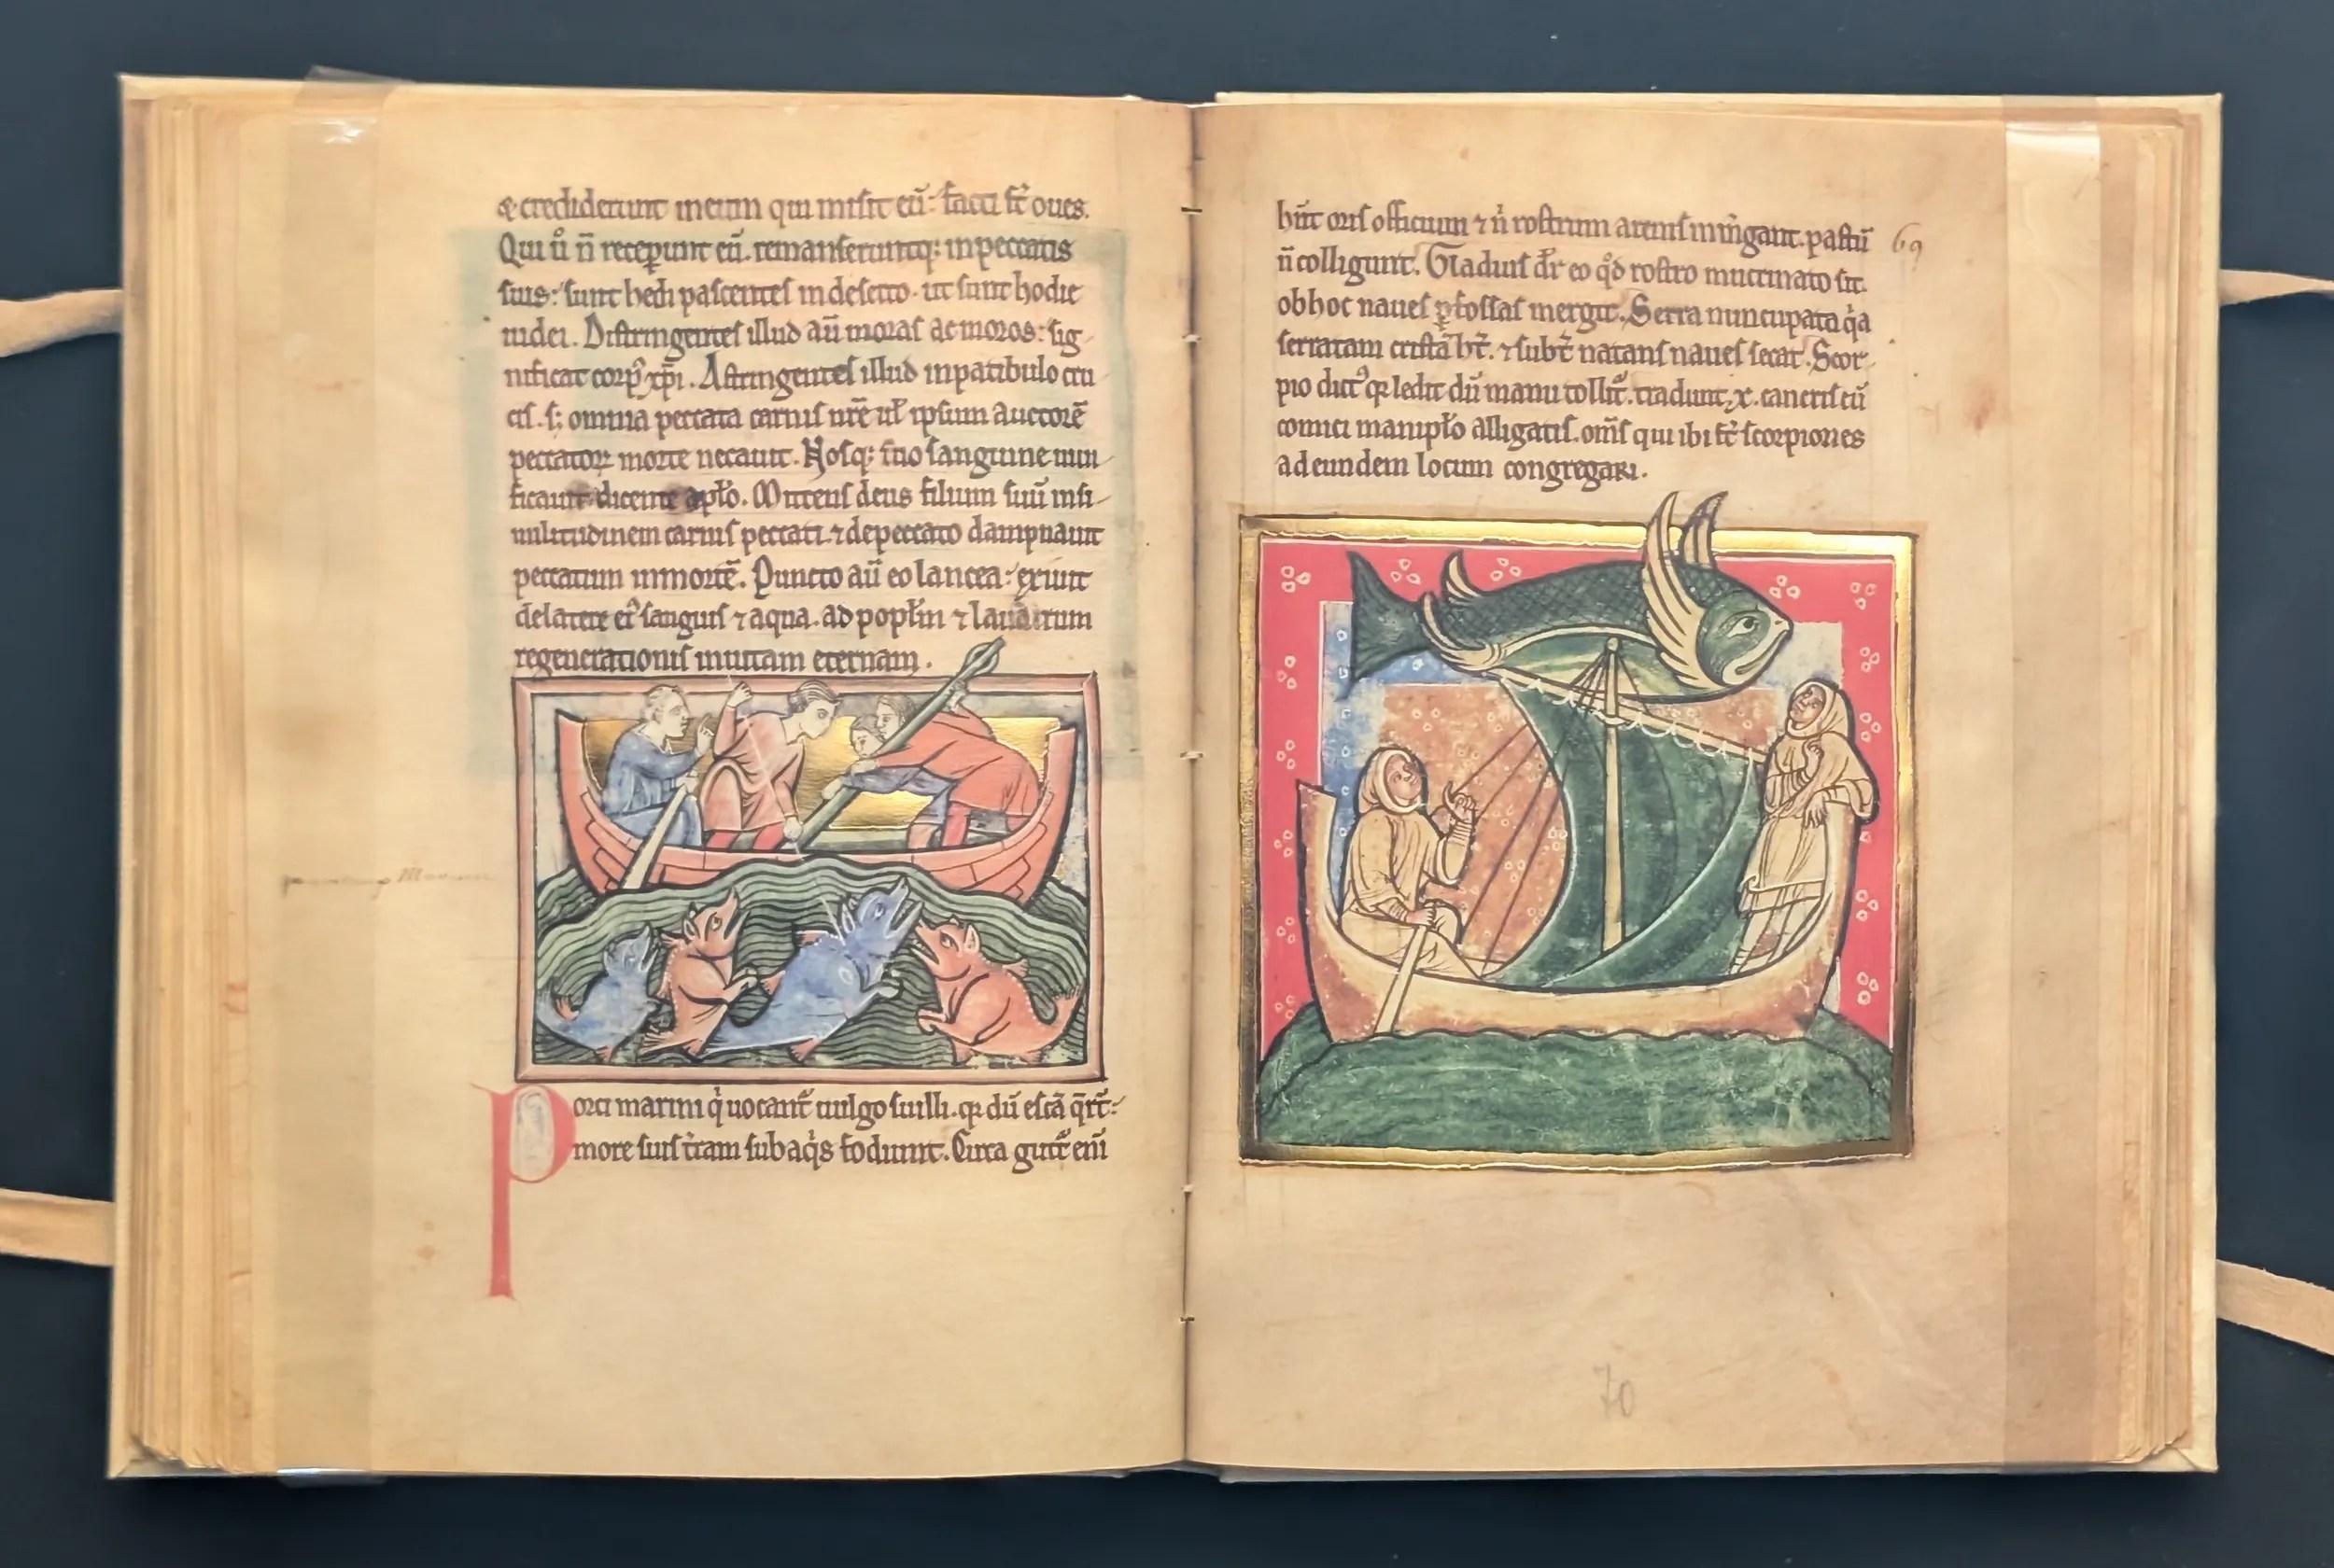 & crediderunt in eum qui misit eū: facti st̄ oues.
Qui ů n̄ receperunt eū. remanseruntq; in peccatis
suis: sunt hedi pascentes in deserto. ut sunt hodie
iudei. Distringentes illud aū moras ac moros: sig
nificat corpꝰ xp̄i. Astringentes illud in patibulo cru
cis. s; omnia peccata carnis nr̄e ul̓ ipsum auctorē
peccatoꝝ morte necauit. Nosq; suo sanguine mun
ficauit dicente apl̓o. Mittens deus filium suū in si
militudinem carnis peccati. ⁊ de peccato dampnauit
peccatum in mortē. Puncto aū eo lancea: exiuit
de latere eiꝰ sanguis ⁊ aqua. ad popl̓m ⁊ lauacrum
regenerationis in uitam eternam.
Porci marini q̓ uocant̄ uulgo suilli. qꝛ dū escā q̄rt̄:
more suis t̓ram sub aq̓s fodiunt. Circa gutt̄ enī
hn̄t oris officium ⁊ n̓ rostrum arenis m̓gant. pastū
n̄ colligunt. Gladius dr̄ eo qd̓ rostro mucrinato sit.
ob hoc naues ꝑfossas mergit. Serra nuncupata q̓a
serratam cristā ht̄. ⁊ subt̄ natans naues secat. Scor
pio dictꝰ qꝛ ledit dū manu tollit̄. tradunt. x. cancris cū
ocimi manipl̓o alligatis. om̄s qui ibi st̄ scorpiones
ad eundem locum congregari.
69
70